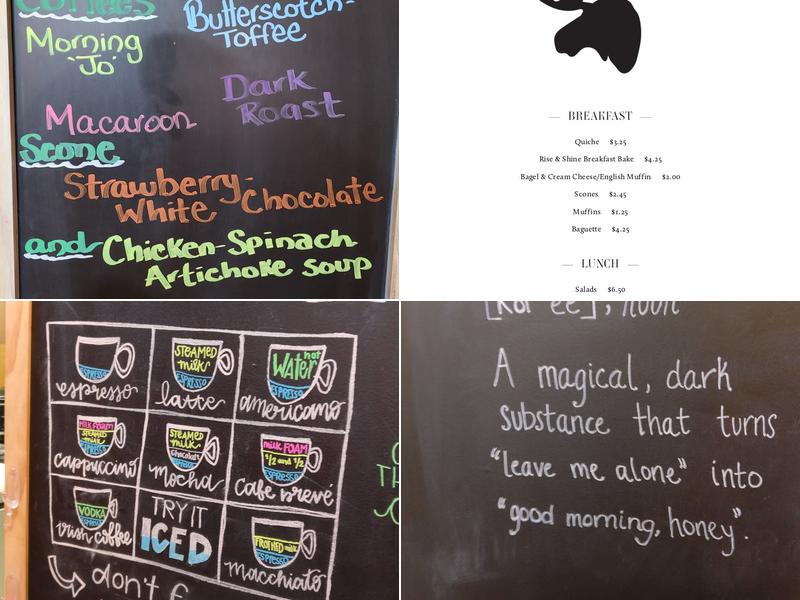 Coffees
Butterscotch-
Toffee
Morning
'Jo'
Dark
Roast
Macaroon
Scone
Strawberry-
White Chocolate
and Chicken-Spinach
Artichoke soup
BREAKFAST
Quiche $3.25
Rise & Shine Breakfast Bake $4.25
Bagel & Cream Cheese/English Muffin $2.00
Scones $2.45
Muffins $1.25
Baguette $4.25
LUNCH
Salads $6.50
ESPRESSO
espresso
STEAMED
milk
ESPRESSO
latte
hot
WATER
ESPRESSO
americano
MILK FOAM
STEAMED
milk
ESPRESSO
cappuccino
STEAMED
milk
chocolate
ESPRESSO
mocha
milk FOAM
1/2 and 1/2
ESPRESSO
cafe brevé
VODKA
ESPRESSO
irish coffee
TRY IT
ICED
FROTHED milk
ESPRESSO
macchiato
don't
[kof ee], noun
A magical, dark
substance that turns
"leave me alone" into
"good morning, honey".